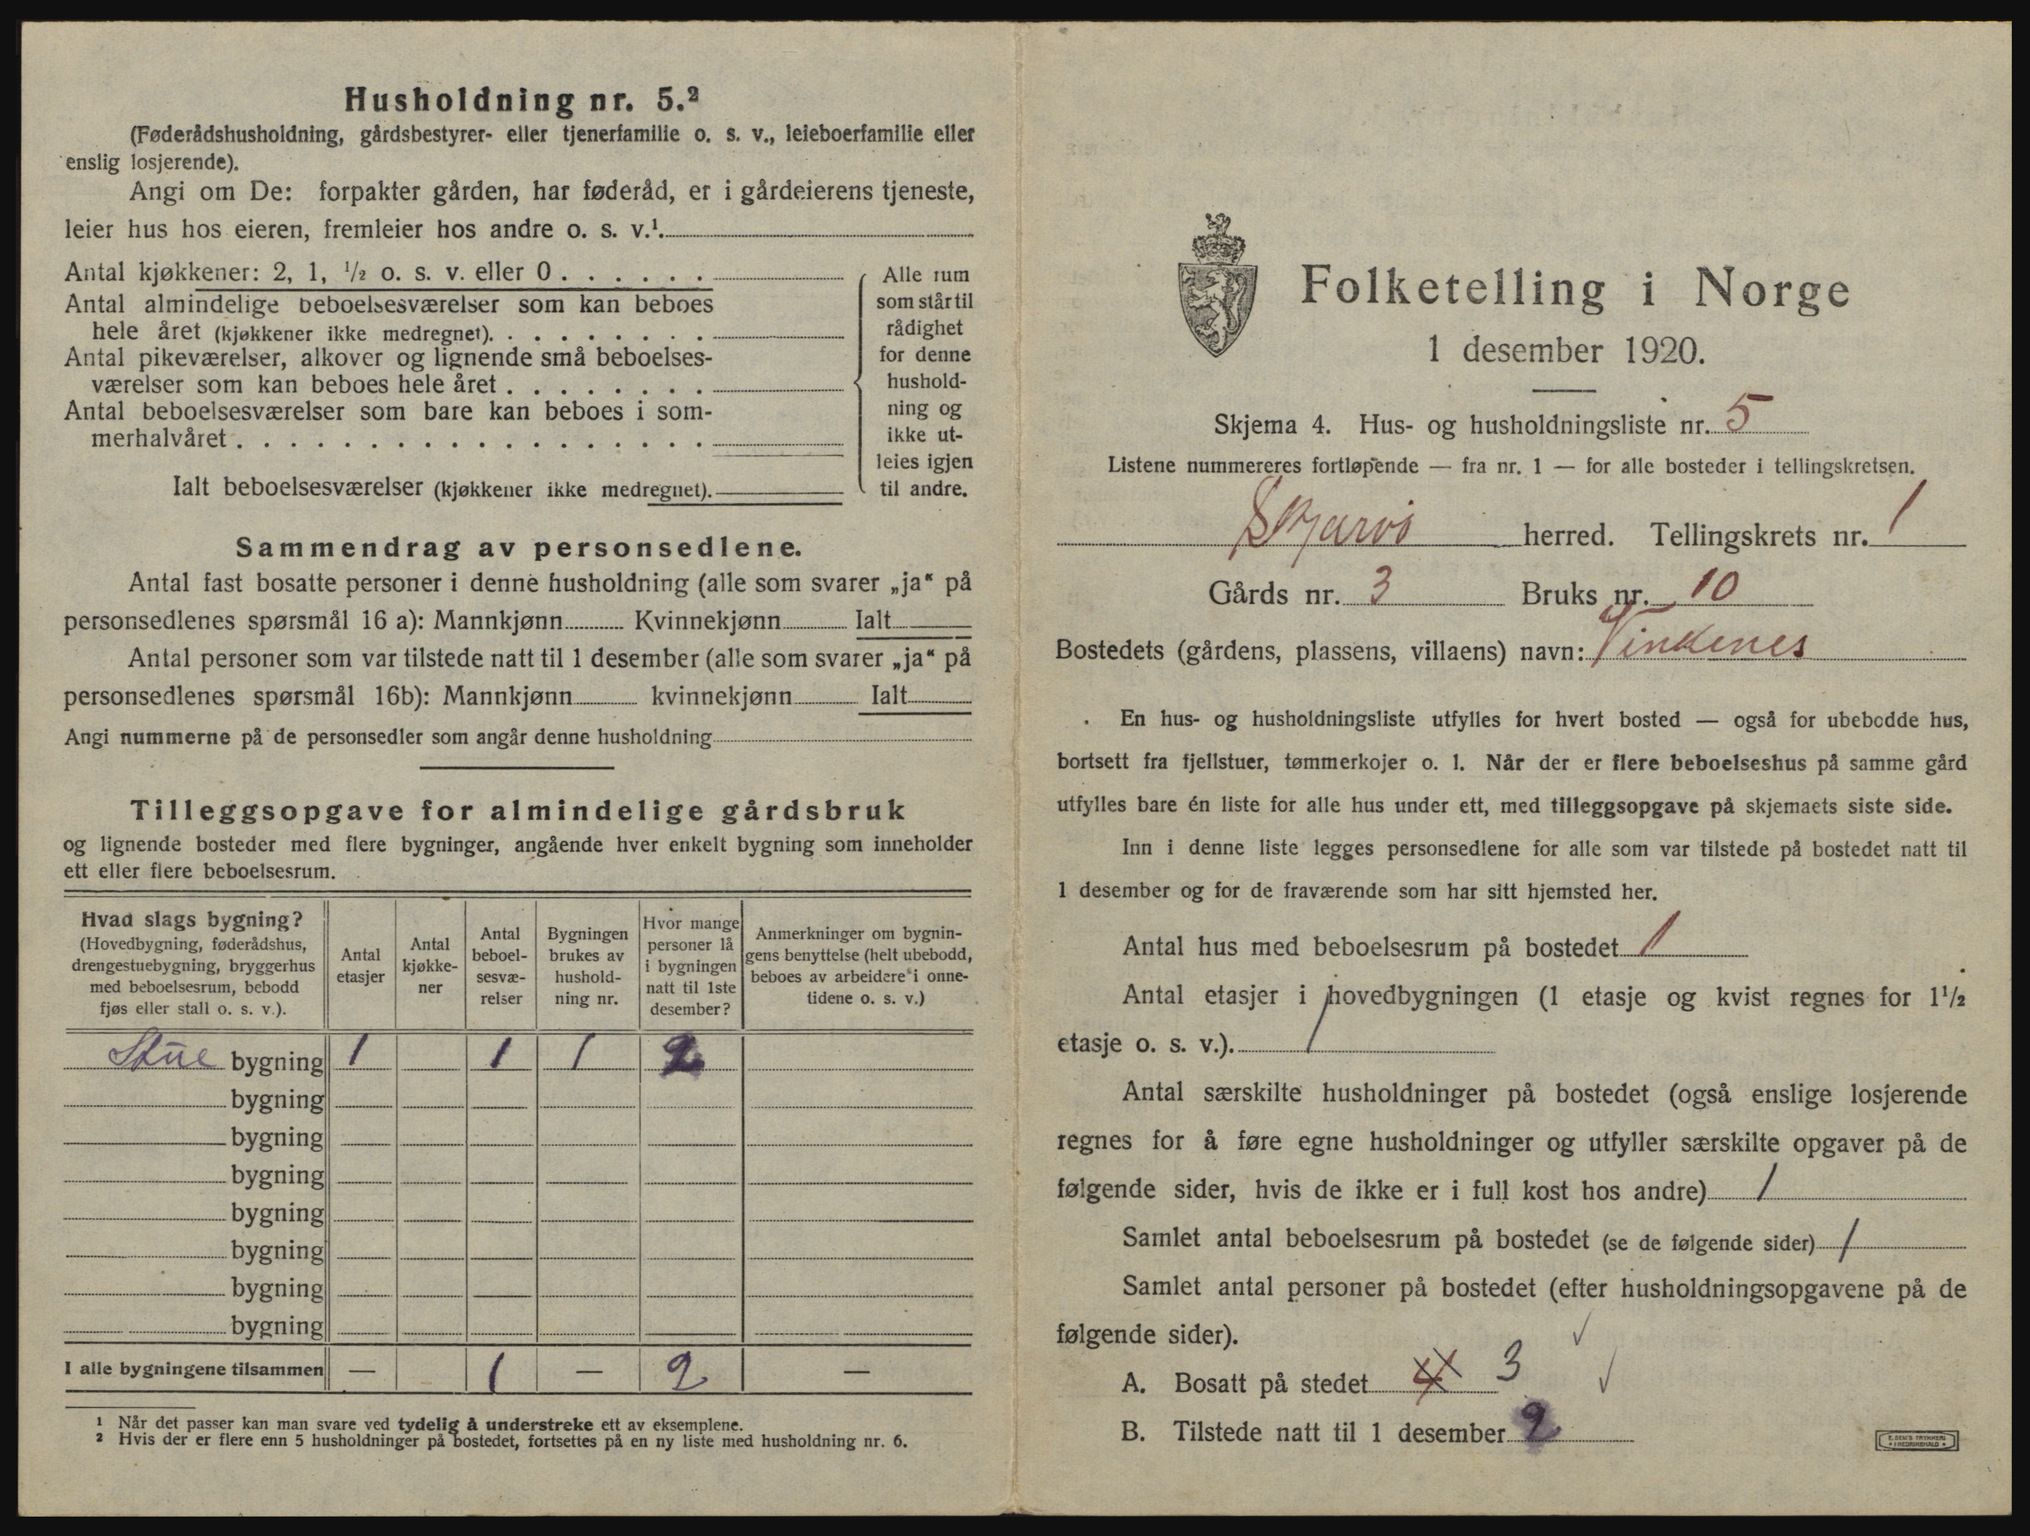 Husholdning nr. 5.²
(Føderådshusholdning, gårdsbestyrer- eller tjenerfamilie o. s. v., leieboerfamilie eller
enslig losjerende).
Angi om De: forpakter gården, har føderåd, er i gårdeierens tjeneste,
leier hus hos eieren, fremleier hos andre o. s. v.¹.
Antal kjøkkener: 2, 1, ½ o. s. v. eller 0 . . . . . .
Antal almindelige beboelsesværelser som kan beboes
hele året (kjøkkener ikke medregnet). . . . . . . . .
Antal pikeværelser, alkover og lignende små beboelses-
værelser som kan beboes hele året . . . . . . . .
Antal beboelsesværelser som bare kan beboes i som-
merhalvåret . . . . . . . . . . . . . . . . . .
Ialt beboelsesværelser (kjøkkener ikke medregnet).
Alle rum
som står til
rådighet
for denne
hushold-
ning og
ikke ut-
leies igjen
til andre.
Sammendrag av personsedlene.
Antal fast bosatte personer i denne husholdning (alle som svarer „ja“ på
personsedlenes spørsmål 16 a): Mannkjønn Kvinnekjønn Ialt
Antal personer som var tilstede natt til 1 desember (alle som svarer „ja“ på
personsedlenes spørsmål 16b): Mannkjønn kvinnekjønn Ialt
Angi nummerne på de personsedler som angår denne husholdning
Tilleggsopgave for almindelige gårdsbruk
og lignende bosteder med flere bygninger, angående hver enkelt bygning som inneholder
ett eller flere beboelsesrum.
Hvad slags bygning?
(Hovedbygning, føderådshus,
drengestuebygning, bryggerhus
med beboelsesrum, bebodd
fjøs eller stall o. s. v.).
Antal
etasjer
Antal
kjøkke-
ner
Antal
beboel-
sesvæ-
relser
Bygningen
brukes av
hushold-
ning nr.
Hvor mange
personer lå
i bygningen
natt til 1ste
desember?
Anmerkninger om bygnin-
gens benyttelse (helt ubebodd,
beboes av arbeidere i onne-
tidene o. s. v.)
Stue bygning 1 1 1 2
bygning
bygning
bygning
bygning
bygning
bygning
bygning
I alle bygningene tilsammen — 1 — 2 —
¹ Når det passer kan man svare ved tydelig å understreke ett av eksemplene.
² Hvis der er flere enn 5 husholdninger på bostedet, fortsettes på en ny liste med husholdning nr. 6.
Folketelling i Norge
1 desember 1920.
Skjema 4. Hus- og husholdningsliste nr. 5
Listene nummereres fortløpende — fra nr. 1 — for alle bosteder i tellingskretsen.
Skjervö herred. Tellingskrets nr. 1
Gårds nr. 3 Bruks nr. 10
Bostedets (gårdens, plassens, villaens) navn: Vinkenes
En hus- og husholdningsliste utfylles for hvert bosted — også for ubebodde hus,
bortsett fra fjellstuer, tømmerkojer o. l. Når der er flere beboelseshus på samme gård
utfylles bare én liste for alle hus under ett, med tilleggsopgave på skjemaets siste side.
Inn i denne liste legges personsedlene for alle som var tilstede på bostedet natt til
1 desember og for de fraværende som har sitt hjemsted her.
Antal hus med beboelsesrum på bostedet 1
Antal etasjer i hovedbygningen (1 etasje og kvist regnes for 1½
etasje o. s. v.). 1
Antal særskilte husholdninger på bostedet (også enslige losjerende
regnes for å føre egne husholdninger og utfyller særskilte opgaver på de
følgende sider, hvis de ikke er i full kost hos andre) 1
Samlet antal beboelsesrum på bostedet (se de følgende sider) 1
Samlet antal personer på bostedet (efter husholdningsopgavene på de
følgende sider).
A. Bosatt på stedet 4 3
B. Tilstede natt til 1 desember 2